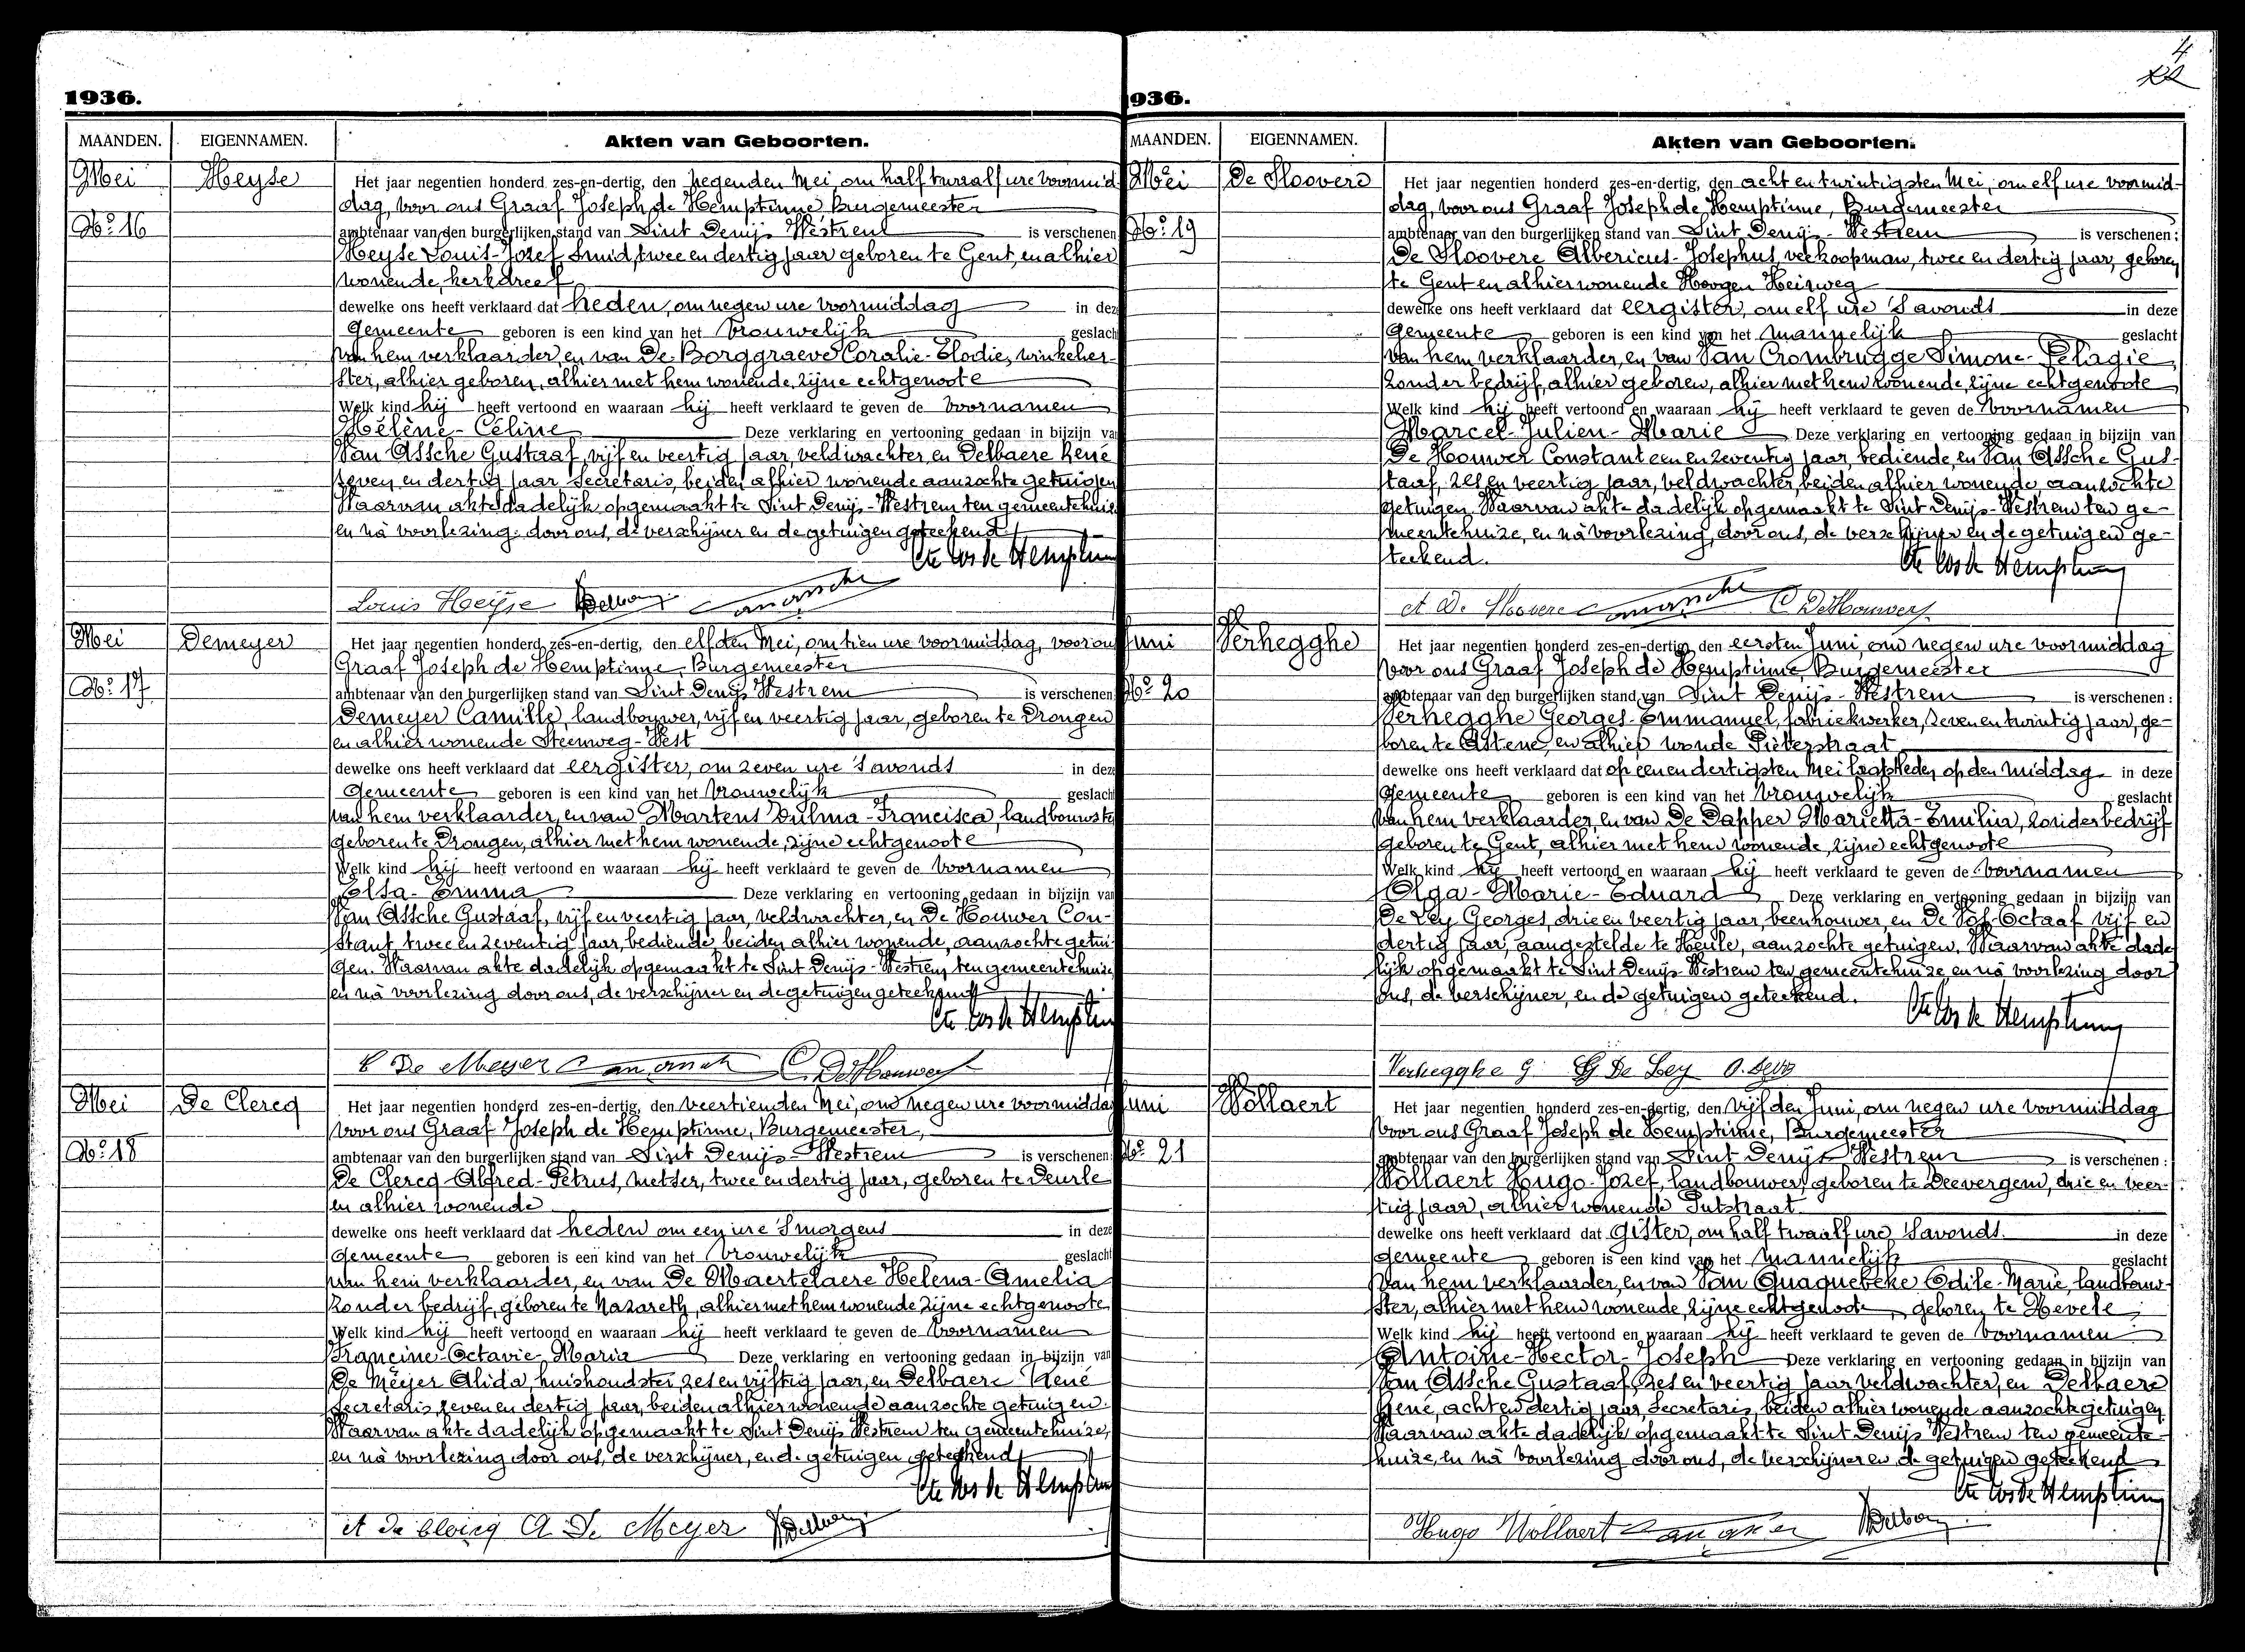 1936.
MAANDEN.
EIGENNAMEN.
Akten van Geboorten.
Mei
Heyse
No. 16
Het jaar negentien honderd zes-en-dertig, den negenden Mei, om half twaalf ure voormid
dag, voor ons Graaf Joseph de Hemptinne Burgemeester
ambtenaar van den burgerlijken stand van Sint Denijs Westrem is verschenen
Heyse Louis-Jozef smid, twee en dertig jaar geboren te Gent, en alhier
wonende, kerkdreef
dewelke ons heeft verklaard dat heden, om negen ure voormiddag in deze
Gemeente geboren is een kind van het vrouwelijk geslach
van hem verklaarder, en van De Borggraeve Coralie-Elodie, winkelier-
ster, alhier geboren, alhier met hem wonende, zijne echtgenoote
Welk kind hij heeft vertoond en waaraan hij heeft verklaard te geven de voornamen
Hélène-Céline Deze verklaring en vertooning gedaan in bijzijn van
Van Assche Gustaaf, vijf en veertig jaar, veldwachter, en Delbaere René
zeven en dertig jaar secretaris, beiden alhier wonende aanzochte getuigen
Waarvan akte dadelijk opgemaakt te Sint Denijs-Westrem ten gemeentehuis
en nà voorlezing door ons, de verschijner en de getuigen geteekend
Cte Jos de Hemptinne
Louis Heyse Delbaere Van Assche
Mei
Demeyer
No. 17
Het jaar negentien honderd zes-en-dertig, den elfden Mei, om tien ure voormiddag, voor ons
Graaf Joseph de Hemptinne, Burgemeester
ambtenaar van den burgerlijken stand van Sint Denijs Westrem is verschenen:
Demeyer Camille, landbouwer, vijf en veertig jaar, geboren te Drongen
en alhier wonende Steenweg-West
dewelke ons heeft verklaard dat eergister, om zeven ure 's avonds in deze
Gemeente geboren is een kind van het vrouwelijk geslacht
van hem verklaarder, en van Martens Zulma-Francisca, landbouwste
geboren te Drongen, alhier met hem wonende, zijne echtgenoote
Welk kind hij heeft vertoond en waaraan hij heeft verklaard te geven de voornamen
Elsa-Emma Deze verklaring en vertooning gedaan in bijzijn van
Van Assche Gustaaf, vijf en veertig jaar, veldwachter, en De Houwer Con-
stant, twee en zeventig jaar, bediende, beiden alhier wonende, aanzochte getui-
gen. Waarvan akte dadelijk opgemaakt te Sint Denijs-Westrem, ten gemeentehuize
en nà voorlezing door ons, de verschijner en de getuigen geteekend
Cte Jos de Hemptinne
C De Meyer Van Assche C. De Houwer
Mei
De Clercq
No. 18
Het jaar negentien honderd zes-en-dertig, den veertienden Mei, om negen ure voormiddag
voor ons Graaf Joseph de Hemptinne, Burgemeester,
ambtenaar van den burgerlijken stand van Sint Denijs-Westrem is verschenen:
De Clercq Alfred-Petrus, metser, twee en dertig jaar, geboren te Deurle
en alhier wonende
dewelke ons heeft verklaard dat heden om een ure 's morgens in deze
Gemeente geboren is een kind van het vrouwelijk geslacht
van hem verklaarder, en van De Maertelaere Helena-Amelia
zonder bedrijf, geboren te Nazareth, alhier met hem wonende zijne echtgenoote
Welk kind hij heeft vertoond en waaraan hij heeft verklaard te geven de voornamen
Francine-Octavie-Maria Deze verklaring en vertooning gedaan in bijzijn van
De Meyer Alida, huishoudster, zes en vijftig jaar, en Delbaere René
secretaris, zeven en dertig jaar, beiden alhier wonende aanzochte getuigen.
Waarvan akte dadelijk opgemaakt te Sint Denijs Westrem ten gemeentehuize,
en nà voorlezing door ons, de verschijner, en de getuigen geteekend
Cte Jos de Hemptinne
A De Clercq A De Meyer Delbaere
4
936.
MAANDEN.
EIGENNAMEN.
Akten van Geboorten.
Mei
De Sloovere
No. 19
Het jaar negentien honderd zes-en-dertig, den acht en twintigsten Mei, om elf ure voormid-
dag, voor ons Graaf Joseph de Hemptinne, Burgemeester
ambtenaar van den burgerlijken stand van Sint Denijs-Westrem is verschenen:
De Sloovere Albericus-Josephus, veekoopman, twee en dertig jaar, geboren
te Gent en alhier wonende Hoogen Heirweg
dewelke ons heeft verklaard dat eergister, om elf ure 's avonds in deze
Gemeente geboren is een kind van het mannelijk geslacht
van hem verklaarder, en van Van Crombrugge Simone-Pelagie,
zonder bedrijf, alhier geboren, alhier met hem wonende, zijne echtgenoote
Welk kind hij heeft vertoond en waaraan hij heeft verklaard te geven de voornamen
Marcel-Julien-Marie Deze verklaring en vertooning gedaan in bijzijn van
De Houwer Constant een en zeventig jaar, bediende, en Van Assche Gus-
taaf, zes en veertig jaar, veldwachter, beiden alhier wonende aanzochte
getuigen. Waarvan akte dadelijk opgemaakt te Sint Denijs-Westrem ten ge-
meentehuize, en nà voorlezing, door ons, de verschijner en de getuigen ge-
teekend.
Cte Jos de Hemptinne
A De Sloovere Van Assche C De Houwer
Juni
Verhegghe
No. 20
Het jaar negentien honderd zes-en-dertig, den eersten Juni, om negen ure voormiddag
voor ons Graaf Joseph de Hemptinne, Burgemeester
ambtenaar van den burgerlijken stand van Sint Denijs-Westrem is verschenen:
Verhegghe Georges-Emmanuel, fabriekwerker, zeven en twintig jaar, ge-
boren te Astene, en alhier wonde Pieterstraat
dewelke ons heeft verklaard dat op een en dertigsten Mei laatstleden, op den middag in deze
Gemeente geboren is een kind van het vrouwelijk geslacht
van hem verklaarder, en van De Dapper Marietta-Emilia, zonder bedrijf
geboren te Gent, alhier met hem wonende, zijne echtgenoote
Welk kind hij heeft vertoond en waaraan hij heeft verklaard te geven de voornamen
Olga-Marie-Eduard Deze verklaring en vertooning gedaan in bijzijn van
De Ley Georges, drie en veertig jaar, beenhouwer, en De Vos Octaaf vijf en
dertig jaar, aangestelde te Heule, aanzochte getuigen. Waarvan akte dade
lijk opgemaakt te Sint Denijs-Westrem ten gemeentehuize en nà voorlezing door
ons, de verschijner, en de getuigen geteekend.
Cte Jos de Hemptinne
Verhegghe G. G De Ley O. Devos
Juni
Wollaert
No. 21
Het jaar negentien honderd zes-en-dertig, den vijfden Juni, om negen ure voormiddag
voor ons Graaf Joseph de Hemptinne, Burgemeester
ambtenaar van den burgerlijken stand van Sint Denijs Westrem is verschenen:
Wollaert Hugo-Jozef, landbouwer, geboren te Deevergem, drie en veer-
tig jaar, alhier wonende Putstraat
dewelke ons heeft verklaard dat gister, om half twaalf ure 's avonds. in deze
gemeente geboren is een kind van het mannelijk geslacht
van hem verklaarder, en van Van Quaquebeke Odile-Marie, landbouw-
ster, alhier met hem wonende, zijne echtgenoote, geboren te Hevele,
Welk kind hij heeft vertoond en waaraan hij heeft verklaard te geven de voornamen
Antoine-Hector-Joseph Deze verklaring en vertooning gedaan in bijzijn van
Van Assche Gustaaf, zes en veertig jaar veldwachter, en Delbaere
René, acht en dertig jaar, secretaris, beiden alhier wonende aanzochte getuigen
Waarvan akte dadelijk opgemaakt te Sint Denijs Westrem ten gemeente-
huize, en nà voorlezing door ons, de verschijner en de getuigen geteekend
Cte Jos de Hemptinne
Hugo Wollaert Van Assche Delbaere